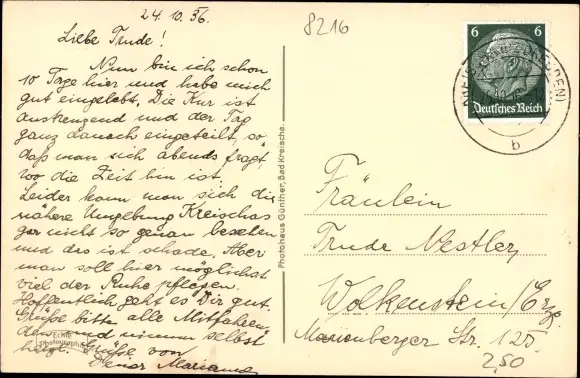 24. 10. 36.
8216
Liebe Trude!
Nun bin ich schon
10 Tage hier und habe mich
gut eingelebt. Die Kur ist
anstrengend und der Tag
ganz danach eingeteilt, so
daß man sich abends fragt,
wo die Zeit hin ist.
Leider kann man sich die
nähere Umgebung Kreischas
gar nicht so genau besehen
und das ist schade. Aber
man soll hier möglichst
viel der Ruhe pflegen.
Hoffentlich geht es Dir gut.
Grüße bitte alle
und nimm selbst
Grüße von
Mariama
Echte
Photographie
Photohaus Günther, Bad Kreischa.
6 6
Deutsches Reich
b
Fräulein
Trude Nestler
Wolkenstein/Erzg.
Marienberger Str. 125.
2,50